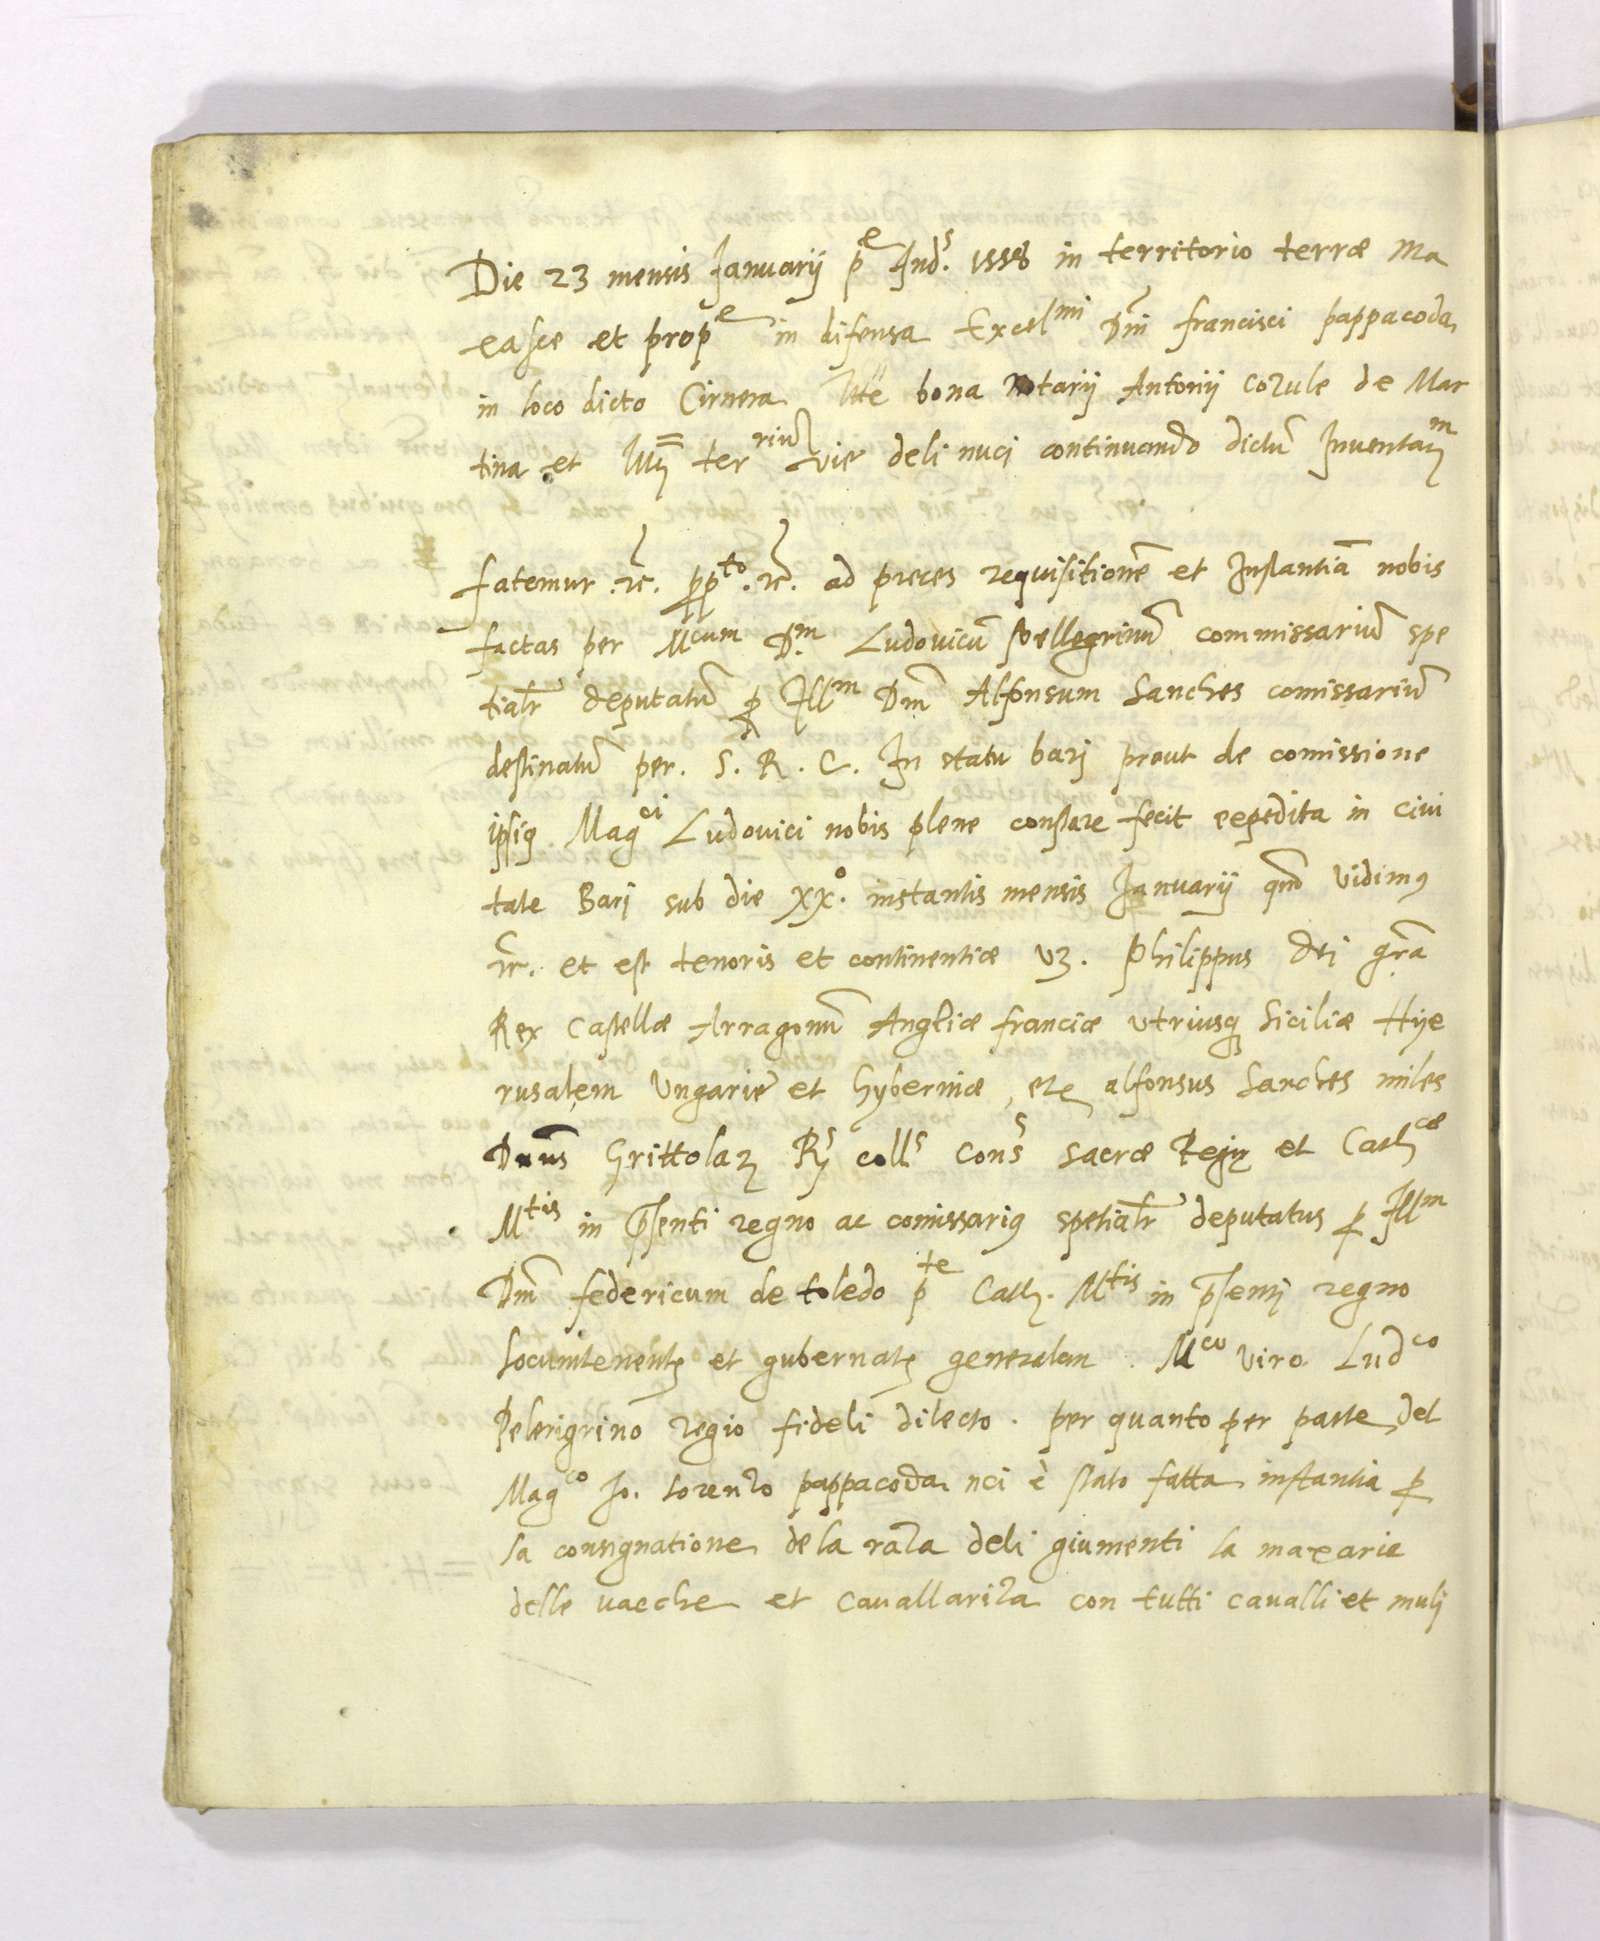 Die 23 mensis Januarij p^e Ind^s. 1558 in territorio terræ Ma
easce et prop^e in difensa Excel^mi Dñi francisci pappacoda
in loco dicto Cirnera bona Notarij Antonij Cozule de Mar
tina et ter^rium vie deli nuci continuando dictũ Inventar^m
fatemur .&c̃. pp^to. &c̃. ad preces requisitionẽ et Instantiã nobis
factas per M^cum D^m. Ludovicũ Pellegrinũ commissariũ spe
tialr̃ deputatũ p Ill^m Dm̃ Alfonsum Sanches comissariũ
destinatũ per. S. R. C. In statu barj prout de comissione
ipsiq Mag^ci Ludovici nobis plene constare fecit expedita in civi
tate Barj sub die xx^o. instantis mensis Januarij qm̃ vidimq
&c̃. et est tenoris et continentiæ vz. Philippus dei gr̃a
Rex Castellæ Arragonũ Angliæ franciæ vtriusq Siciliæ Hye
rusalem Vngarie et hyberniæ, etc alfonsus Sanches miles
Dnũs Grittolaz Rȳ coll^s cons^s sacræ Regię et Cath^cæ
M^tis in p̃senti regno ac comissariq spetialr̃ deputatus p Ill^m
Dm̃ federicum de toledo p^te Cath. M^tis in p̃senti regno
locumtenentẽ et gubernatẽ generalem. M^co viro Lud^co
Pelerigrino regio fideli dilecto. per quanto per parte del
Mag^co Jo. Lorenzo pappacoda nci è stato fatta instantia p
la consignatione de la razza deli giumenti la maxaria
delle vacche et cavallariza con tutti cavalli et mulj